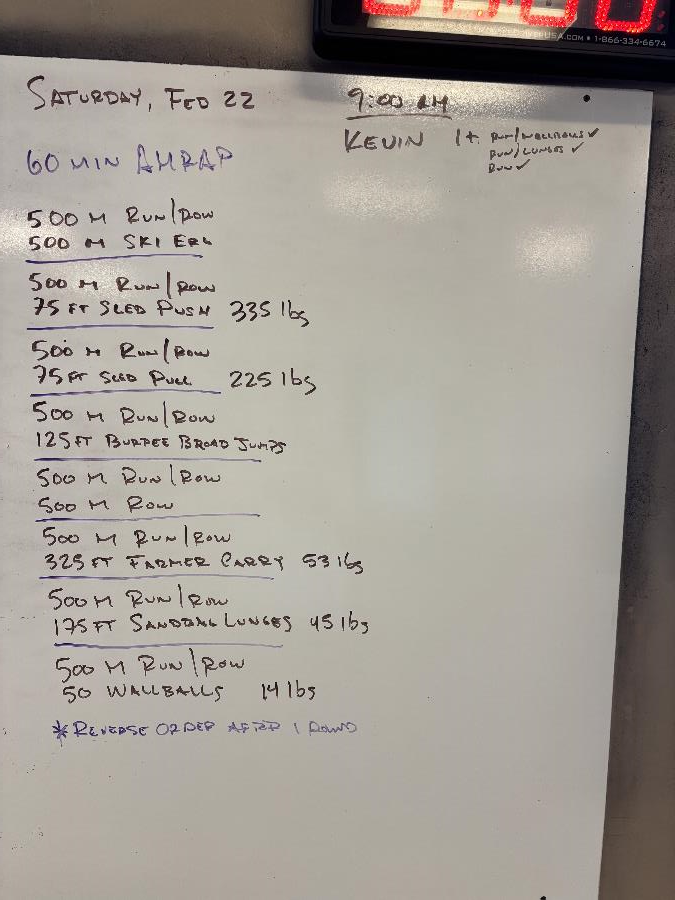 USA.COM • 1-866-334-6674
SATURDAY, FEB 22
9:00 AM
KEVIN 1+ RUN/WALLBALLS ✓
RUN/LUNGES ✓
RUN ✓
60 MIN AMRAP
500 M RUN/ROW
500 M SKI ERG
500 M RUN/ROW
75 FT SLED PUSH 335 lbs
500 M RUN/ROW
75 FT SLED PULL 225 lbs
500 M RUN/ROW
125 FT BURPEE BROAD JUMPS
500 M RUN/ROW
500 M ROW
500 M RUN/ROW
325 FT FARMER CARRY 53 lbs
500 M RUN/ROW
175 FT SANDBAG LUNGES 45 lbs
500 M RUN/ROW
50 WALLBALLS 14 lbs
*REVERSE ORDER AFTER 1 ROUND